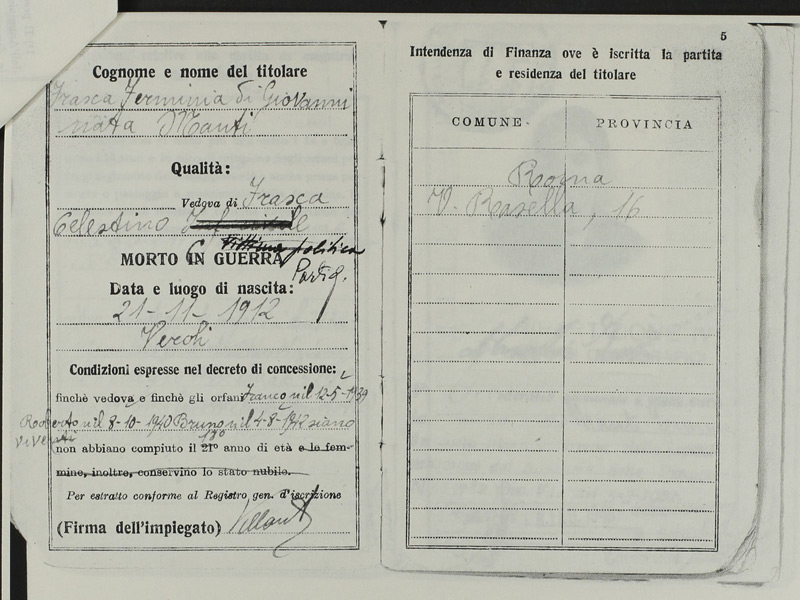 Cognome e nome del titolare
Frasca Ferminia di Giovanni
nata Manti
Qualità:
Vedova di Frasca
Celestino
vittima politica
MORTO IN GUERRA
Partig.
Data e luogo di nascita:
21-11-1912
Veroli
Condizioni espresse nel decreto di concessione:
finchè vedova e finchè gli orfani Franco n il 12-5-1939
Roberto n il 8-10-1940 Bruno n il 4-8-1942 siano
viventi
non abbiano compiuto il 21º anno di età e le fem-
mine, inoltre, conservino lo stato nubile.
Per estratto conforme al Registro gen. d'iscrizione
(Firma dell'impiegato)
5
Intendenza di Finanza ove è iscritta la partita
e residenza del titolare
COMUNE PROVINCIA
Roma
V. Rasella, 16